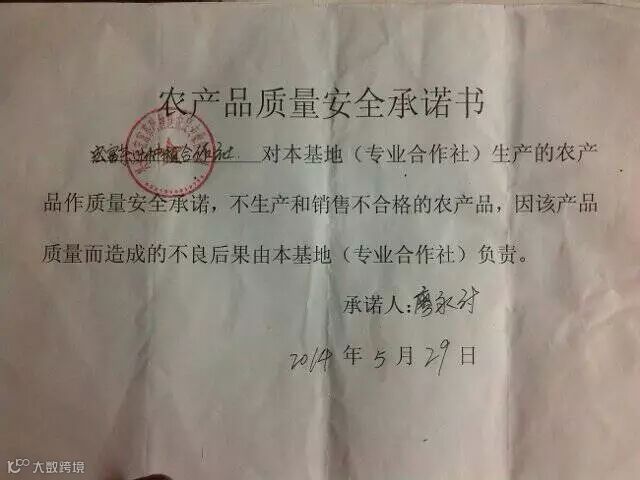 农产品质量安全承诺书
种植合作社 对本基地（专业合作社）生产的农产
品作质量安全承诺，不生产和销售不合格的农产品，因该产品
质量而造成的不良后果由本基地（专业合作社）负责。
承诺人：廖永讨
2014 年 5 月 29 日
大数跨境